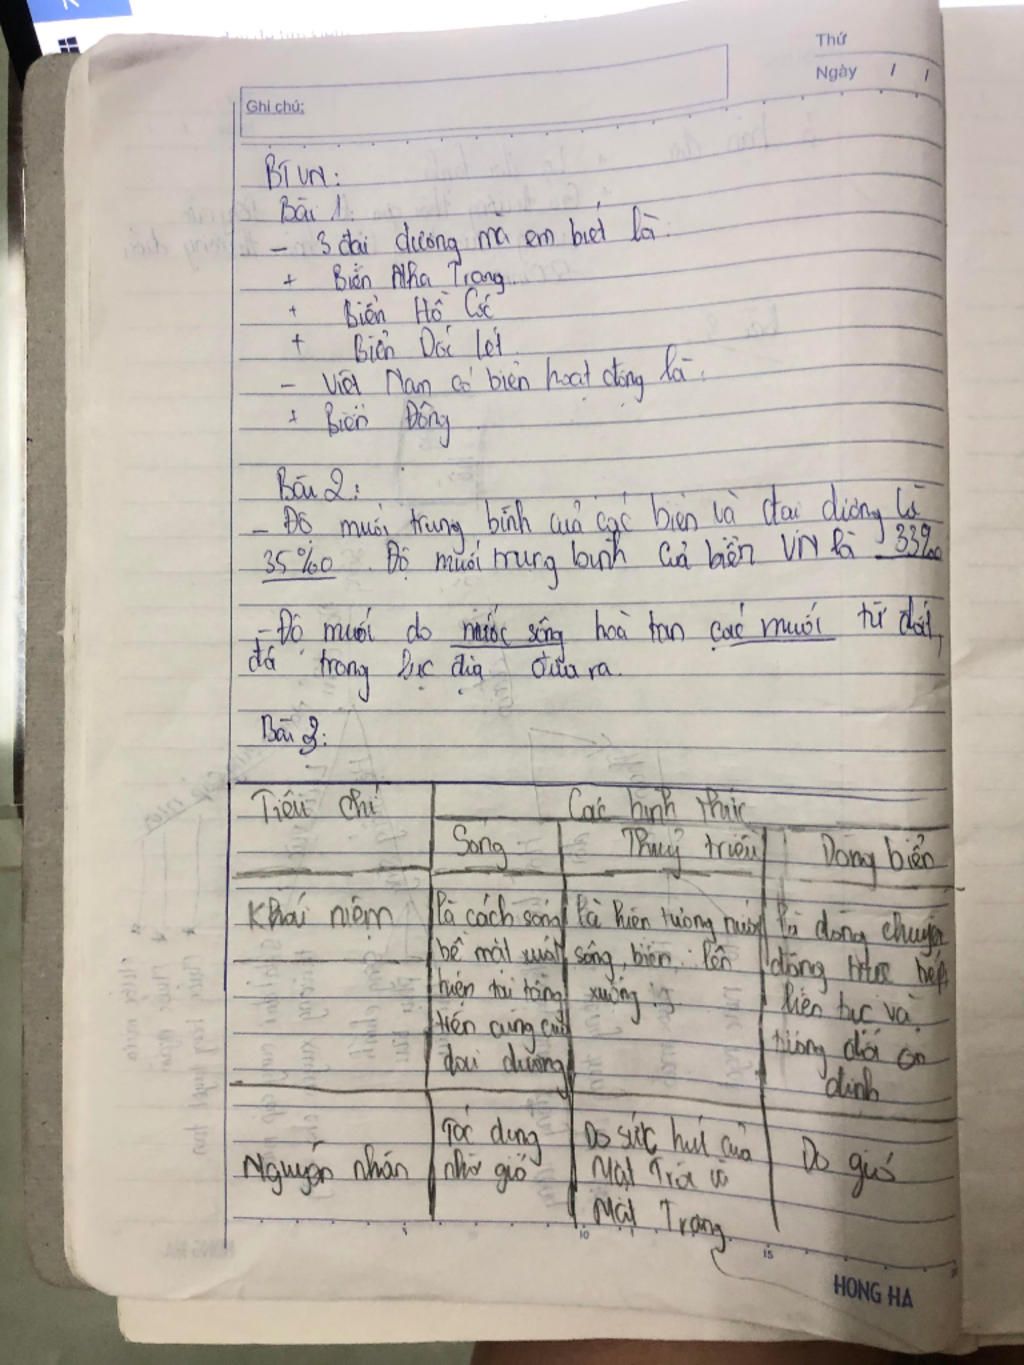 Thứ
Ngày / /
Ghi chú:
BTVN:
Bài 1:
- 3 đại dương mà em biết là:
+ Biển Nha Trang
+ Biển Hồ Cốc
+ Biển Dốc Lết
- Việt Nam có biển hoạt động là:
+ Biển Đông
Bài 2:
- Độ muối trung bình của các biển và đại dương là
35%0. Độ muối trung bình của biển VN là 33%0
- Độ muối do nước sông hoà tan các muối từ đất,
đá trong lục địa đưa ra.
Bài 3:
Tiêu chí
Các hình thức
Sóng
Thuỷ triều
Dòng biển
Khái niệm
là cách sóng
bề mặt xuất
hiện tại tầng
trên cùng của
đại dương
là hiện tượng nước
sông, biển, lên
xuống
là dòng chuyển
động trực tiếp
liên tục và
tương đối ổn
định
Nguyên nhân
Tác dụng
nhờ gió
Do sức hút của
Mặt Trời và
Mặt Trăng
Do gió
5
10
15
HONG HA